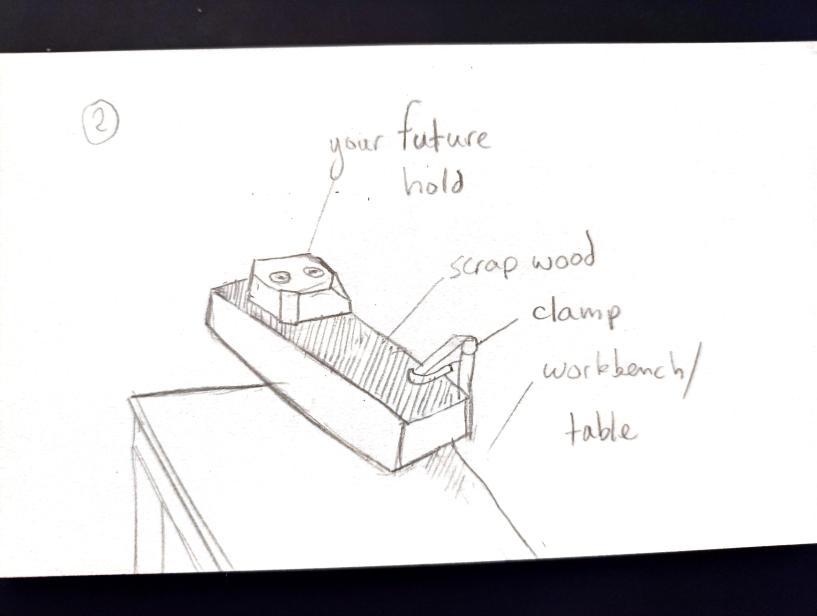 2
your future
hold
scrap wood
clamp
workbench/
table